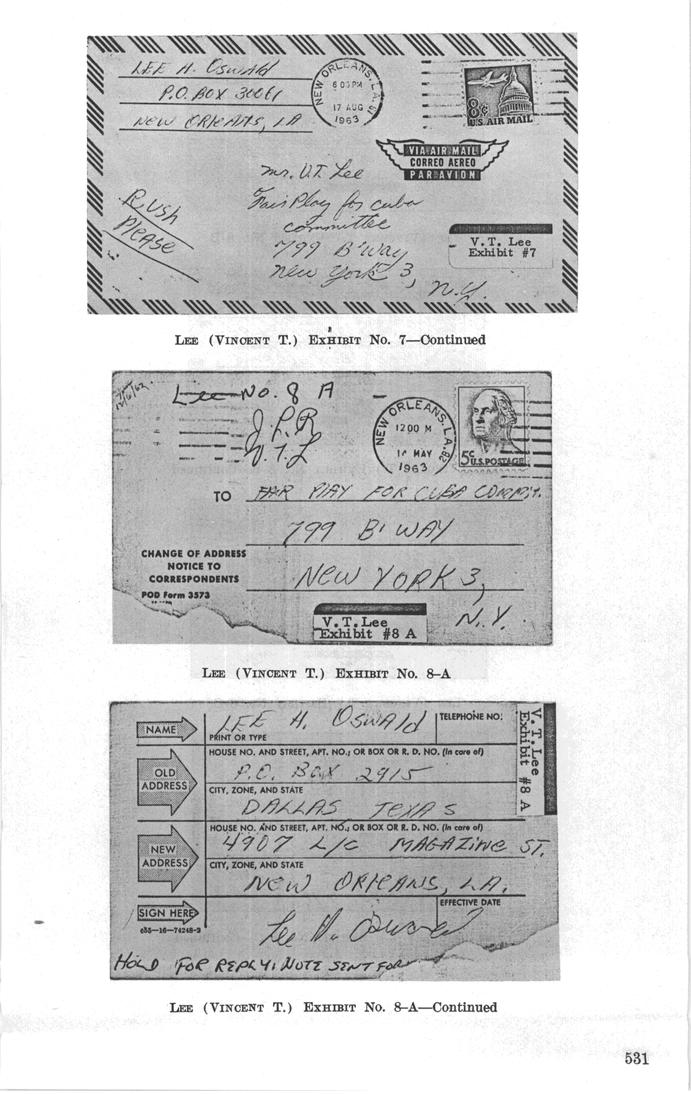 LEE H. OSWALD
P.O. BOX 30061
NEW ORLEANS, LA
NEW ORLEANS, LA.
6 PM
17 AUG
1963
8¢
U.S. AIR MAIL
VIA AIR MAIL
CORREO AEREO
PAR AVION
Mr. V.T. Lee
Fair Play for Cuba
committee
799 B'way
New York 3,
N.Y.
Rush
Please
V.T. Lee
Exhibit #7
LEE (VINCENT T.) EXHIBIT No. 7—Continued
Lee No. 8 A
V.T.L
NEW ORLEANS, LA.
12 00 M
MAY
1963
5¢
U.S. POSTAGE
TO FAIR PLAY FOR CUBA COMMIT.
799 B'WAY
NEW YORK 3,
N.Y.
CHANGE OF ADDRESS
NOTICE TO
CORRESPONDENTS
POD Form 3573
V.T.Lee
Exhibit #8 A
LEE (VINCENT T.) EXHIBIT No. 8-A
NAME
LEE H. OSWALD
PRINT OR TYPE
TELEPHONE NO:
V.T.Lee
Exhibit #8 A
HOUSE NO. AND STREET, APT. NO.; OR BOX OR R. D. NO. (In care of)
OLD
ADDRESS
P.O. BOX 2915
CITY, ZONE, AND STATE
DALLAS TEXAS
HOUSE NO. AND STREET, APT. NO.; OR BOX OR R. D. NO. (In care of)
NEW
ADDRESS
4907 L/C MAGAZINE ST.
CITY, ZONE, AND STATE
NEW ORLEANS, LA.
SIGN HERE
EFFECTIVE DATE
Lee H. Oswald
c55—16—74248-2
HOLD FOR REPLY: NOTE SENT FOR
LEE (VINCENT T.) EXHIBIT No. 8-A—Continued
531